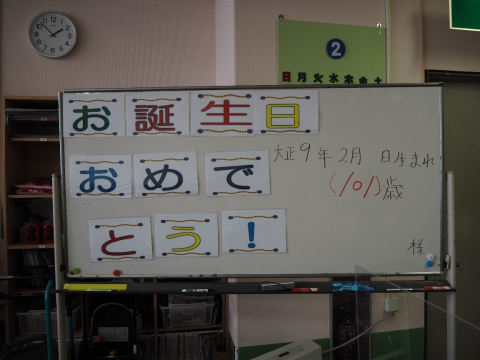 2
日 月 火 水 木 金 土
お誕生日
おめで
とう！
大正9年2月 日生まれ
(101)歳
様